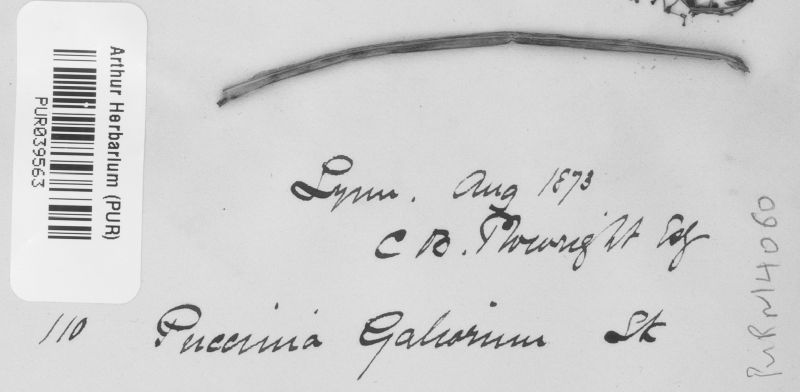 Arthur Herbarium (PUR)
PUR039563
Lynn. Aug 1873
C B. Plowright Esq
110 Puccinia Galiorum Lk
PURN14060